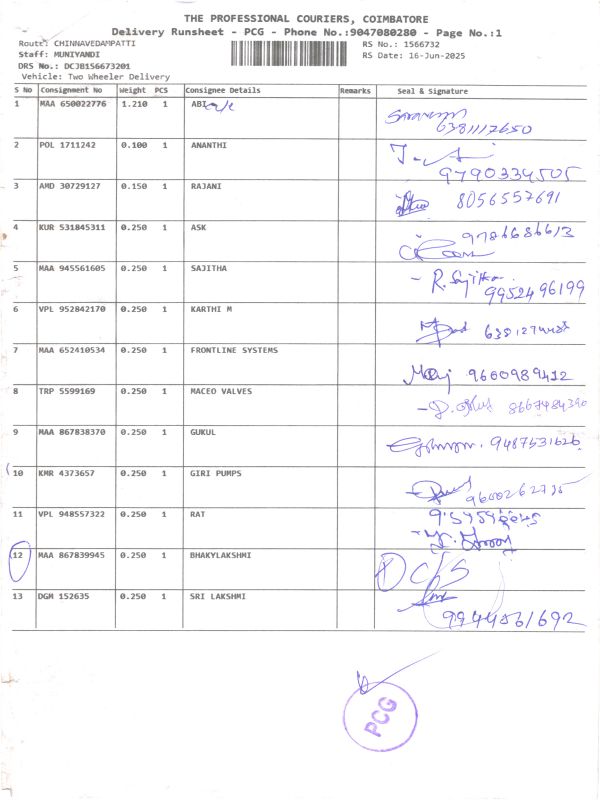 THE PROFESSIONAL COURIERS, COIMBATORE
Delivery Runsheet - PCG - Phone No.:9047080280 - Page No.:1
Route: CHINNAVEDAMPATTI RS No.: 1566732
Staff: MUNIYANDI RS Date: 16-Jun-2025
DRS No.: DCJB156673201
Vehicle: Two Wheeler Delivery
S No Consignment No Weight PCS Consignee Details Remarks Seal & Signature
1 MAA 650022776 1.210 1 ABI
6381117650
2 POL 1711242 0.100 1 ANANTHI
9790334505
3 AMD 30729127 0.150 1 RAJANI
8056557691
4 KUR 531845311 0.250 1 ASK
9786686613
5 MAA 945561605 0.250 1 SAJITHA
R. Sajitha
9952496199
6 VPL 952842170 0.250 1 KARTHI M
7 MAA 652410534 0.250 1 FRONTLINE SYSTEMS
9600989412
8 TRP 5599169 0.250 1 MACEO VALVES
8667484390
9 MAA 867838370 0.250 1 GUKUL
9487531626
10 KMR 4373657 0.250 1 GIRI PUMPS
9600262735
11 VPL 948557322 0.250 1 RAT
12 MAA 867839945 0.250 1 BHAKYLAKSHMI
13 DGM 152635 0.250 1 SRI LAKSHMI
PCG